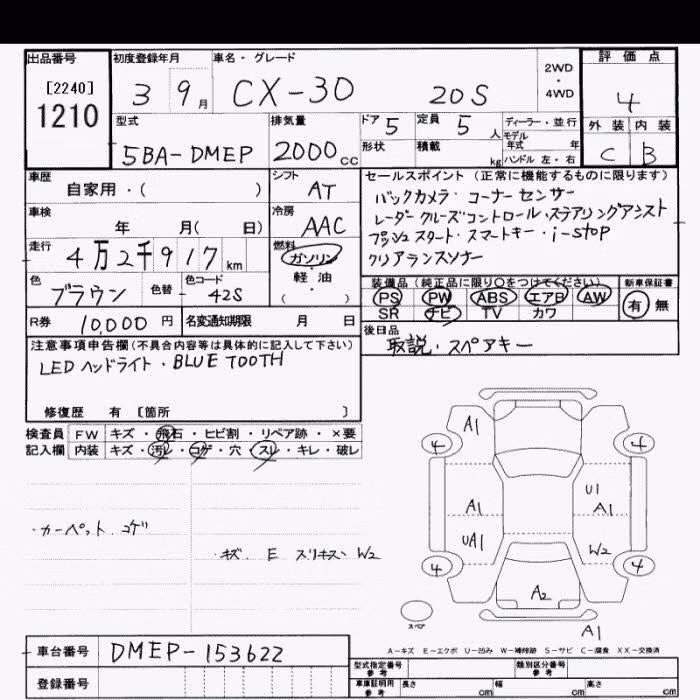 出品番号 初度登録年月 車名・グレード 評価点
[2240] 3 9月 CX-30 20S 2WD・4WD 4
1210
型式 排気量 ドア 5 定員 5人 ディーラー・並行 外装 内装
5BA-DMEP 2000cc 形状 積載 kg モデル年式 年 C B
ハンドル 左・右
車歴 シフト セールスポイント (正常に機能するものに限ります)
自家用・( ) AT バックカメラ・コーナーセンサー
車検 冷房 レーダークルーズコントロール・ステアリングアシスト
年 月( 日) AAC プッシュスタート・スマートキー・i-stop
走行 燃料 クリアランスソナー
4万2千917km ガソリン・軽・油
( )
色 色替 色コード 装備品 (純正品に限り○をつけてください) 新車保証書
ブラウン 42S PS PW ABS エアB AW 有 無
SR ナビ TV カワ
R券 10,000円 名変通知期限 月 日 後日品
取説・スペアキー
注意事項申告欄(不具合内容等は具体的に記入して下さい)
LEDヘッドライト・BLUE TOOTH
修復歴 有 [箇所 ]
検査員 FW キズ・飛石・ヒビ割・リペア跡・×要
記入欄 内装 キズ・汚レ・コゲ・穴・スレ・キレ・破レ
A1
4 4
A1 U1
A1
UA1 W2
4 4
A2
A1
・カーペット コゲ
・キズ E スリキズ W2
スペア
A-キズ E-エクボ U-凹み W-補修跡 S-サビ C-腐食 XX-交換済
車台番号 DMEP-153622
型式指定番号 参考 類別区分番号 参考
登録番号 車庫証明用 参考 長さ cm 幅 cm 高さ cm